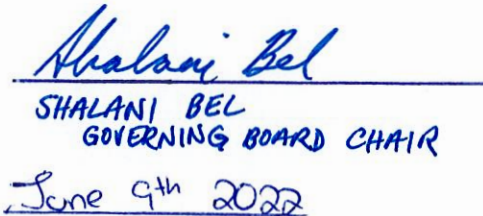 Shalani Bel
SHALANI BEL
GOVERNING BOARD CHAIR
June 9th 2022